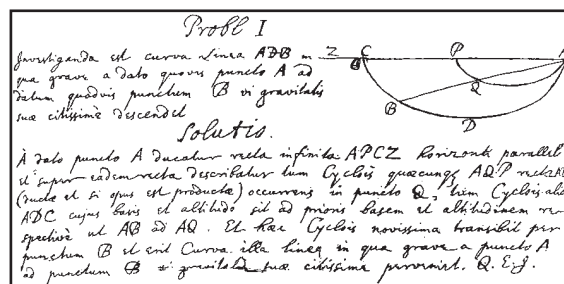 Probl I
Investiganda est curva Linea ADB in
qua grave a dato quovis puncto A ad
datum quodvis punctum B vi gravitatis
suæ citissimè descendet
Z C P A
B Q D
Solutio.
A dato puncto A ducatur recta infinita APCZ horizonti parallel
et super eadem recta describatur tum Cyclois quæcunq AQP rectæ
(ductæ et si opus est productæ) occurrens in puncto Q, tum Cyclois alia
ADC cujus basis et altitudo sit ad prioris basem et altitudinem re
spective ut AB ad AQ. Et hæc Cyclois novissima transibit per
punctum B et erit Curva illa linea in qua grave a puncto A
ad punctum B vi gravitatis suæ citissime perveniet. Q. E. J.